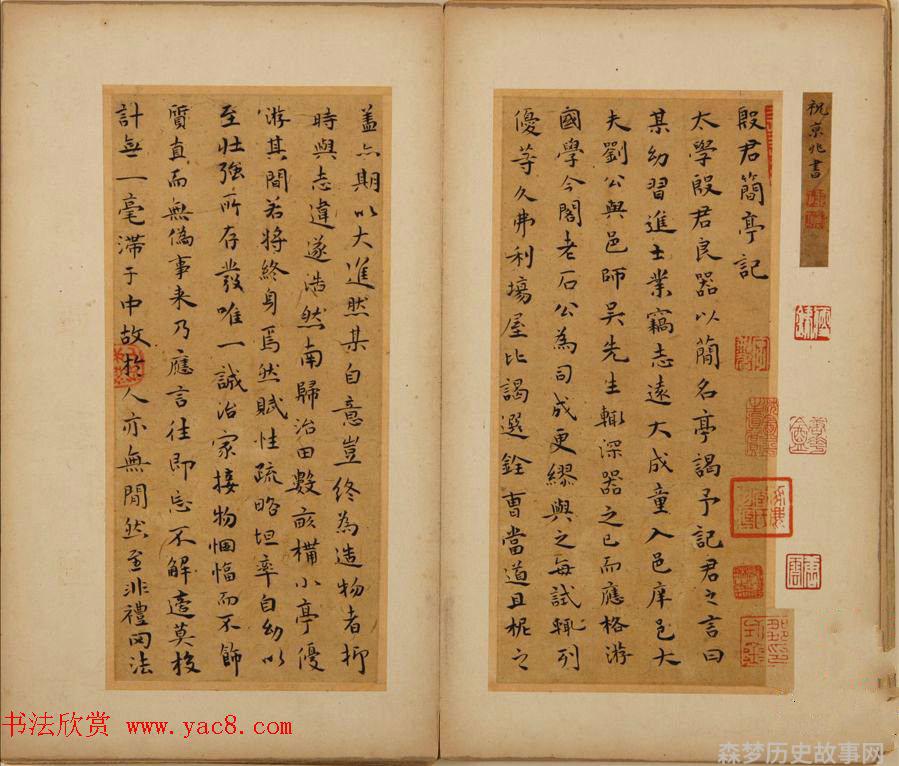 祝京兆書
殷君簡亭記
太學殷君良器以簡名亭謁予記君之言曰
某幼習進士業竊志遠大成童入邑庠邑大
夫劉公與邑師吳先生輙深器之已而應格游
國學今閣老石公為司成更繆與之每試輙列
優等久弗利場屋比謁選銓曹當道且柅之
盖亦期以大進然某自意豈終為造物者抑
時與志違遂浩然南歸治田數畝構小亭優
游其間若將終身焉然賦性疏略坦率自幼以
至壮強所存發唯一誠治家接物悃愊而不飾
質直而無偽事来乃應言往即忘不解達莫校
計無一毫滞于中故於人亦無間然至非禮罔法
书法欣赏 www.yac8.com
森梦历史故事网